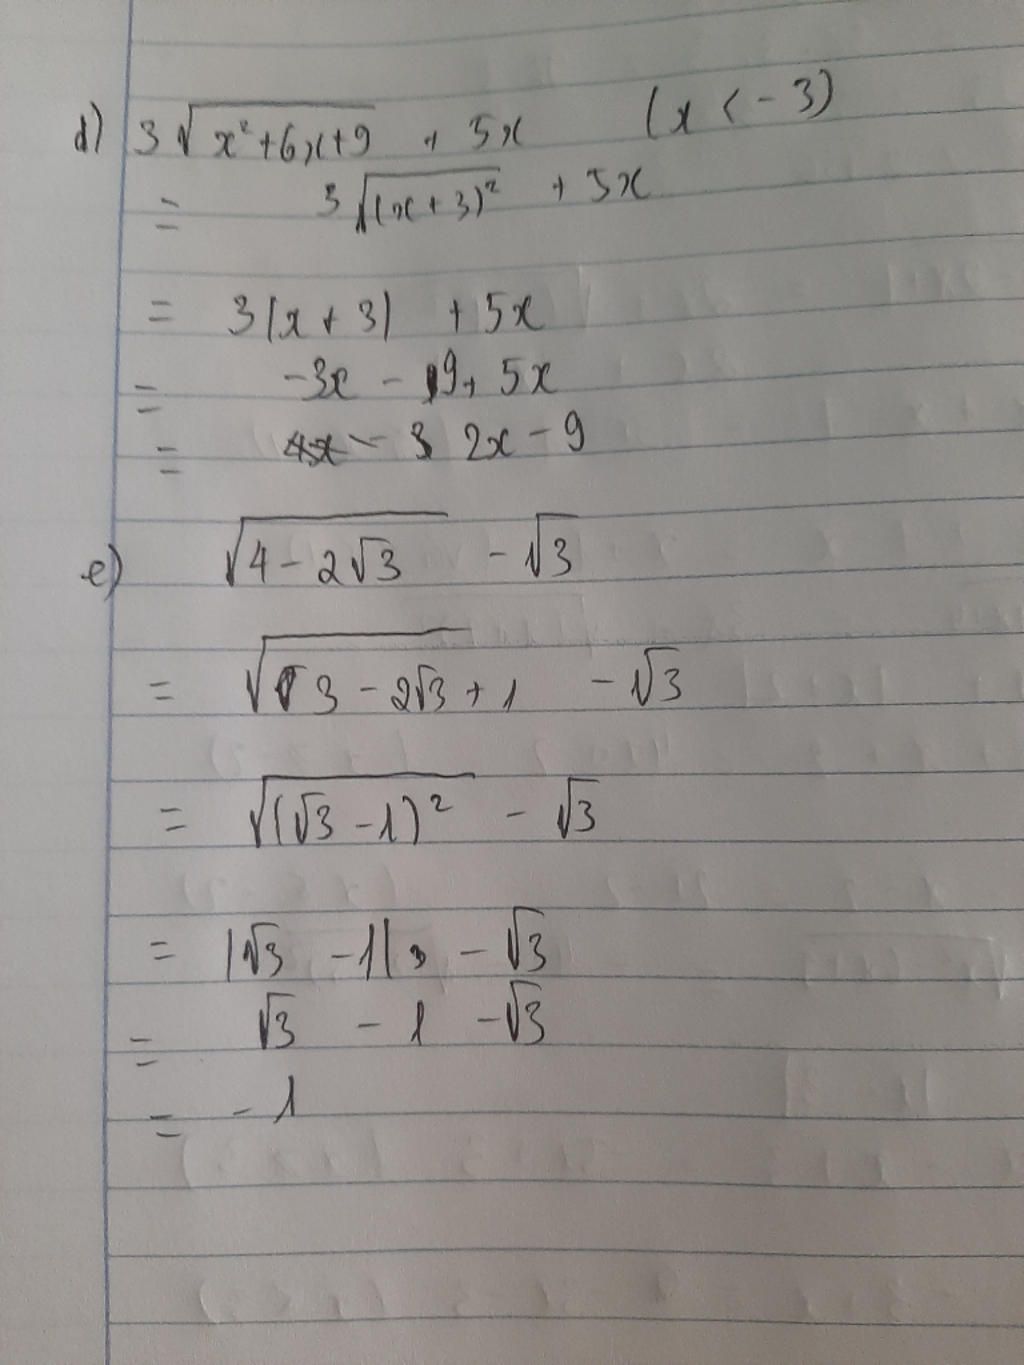 d) 3√(x²+6x+9) + 5x (x < -3)
= 3√((x+3)²) + 5x
= 3|x + 3| + 5x
= -3x - 9 + 5x
= 2x - 9
e) √(4 - 2√3) - √3
= √(3 - 2√3 + 1) - √3
= √((√3 - 1)²) - √3
= |√3 - 1| - √3
= √3 - 1 - √3
= - 1